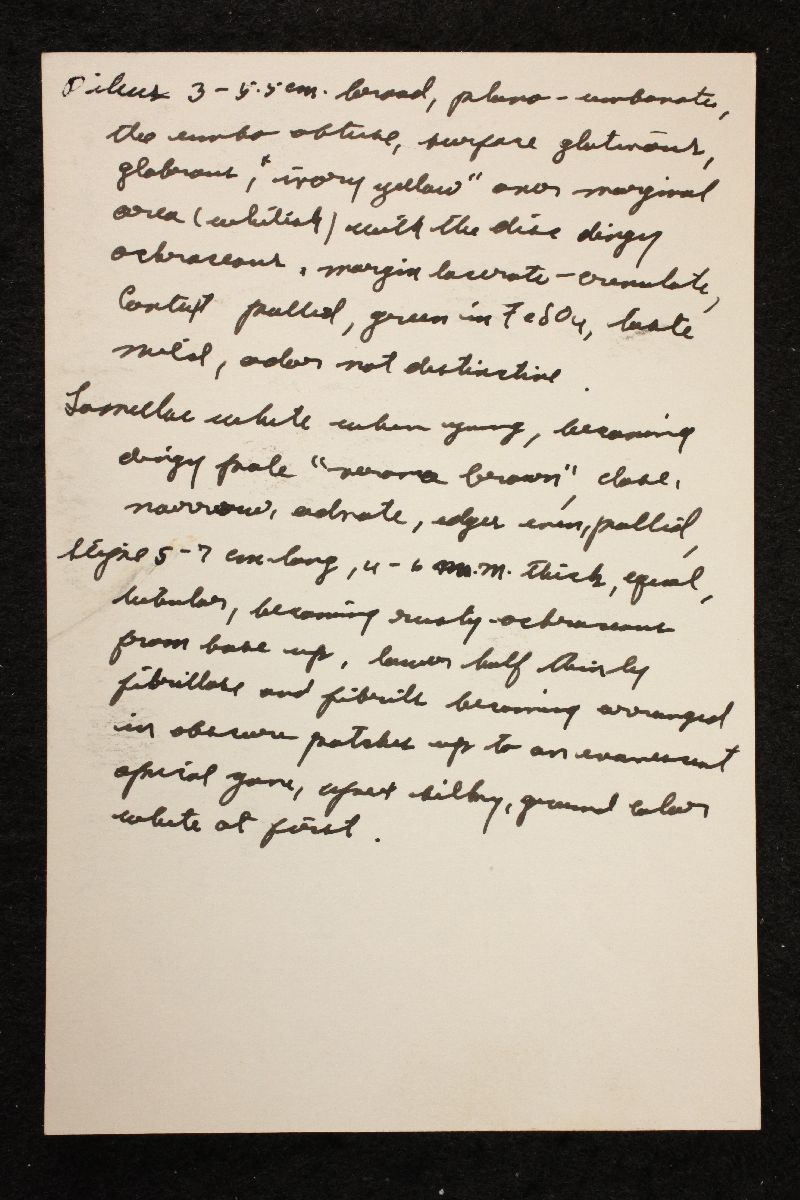 Pileus 3-5.5 cm. broad, plano-umbonate,
the umbo obtuse, surface glutinous,
glabrous, "ivory yellow" over marginal
area (whitish) with the disc dingy
ochraceous, margin lacerate-crenulate,
Context pallid, green in FeSO4, taste
mild, odor not distinctive.
Lamellae white when young, becoming
dingy pale "verona brown", close,
narrow, adnate, edges even, pallid,
Stipe 5-7 cm long, 4-6 m.m. thick, equal,
tubular, becoming rusty-ochraceous
from base up, lower half thinly
fibrillose and fibrils becoming arranged
in obscure patches up to an evanescent
apical zone, apex silky, ground color
white at first.